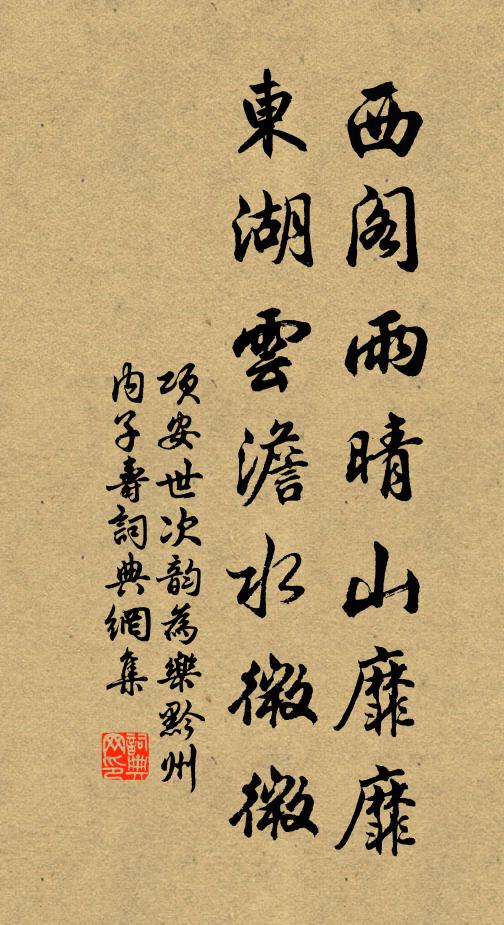 西閣雨晴山靡靡
東湖雲澹水微微
項安世次韵為樂黔州
內子壽詞典網集
詞典網印